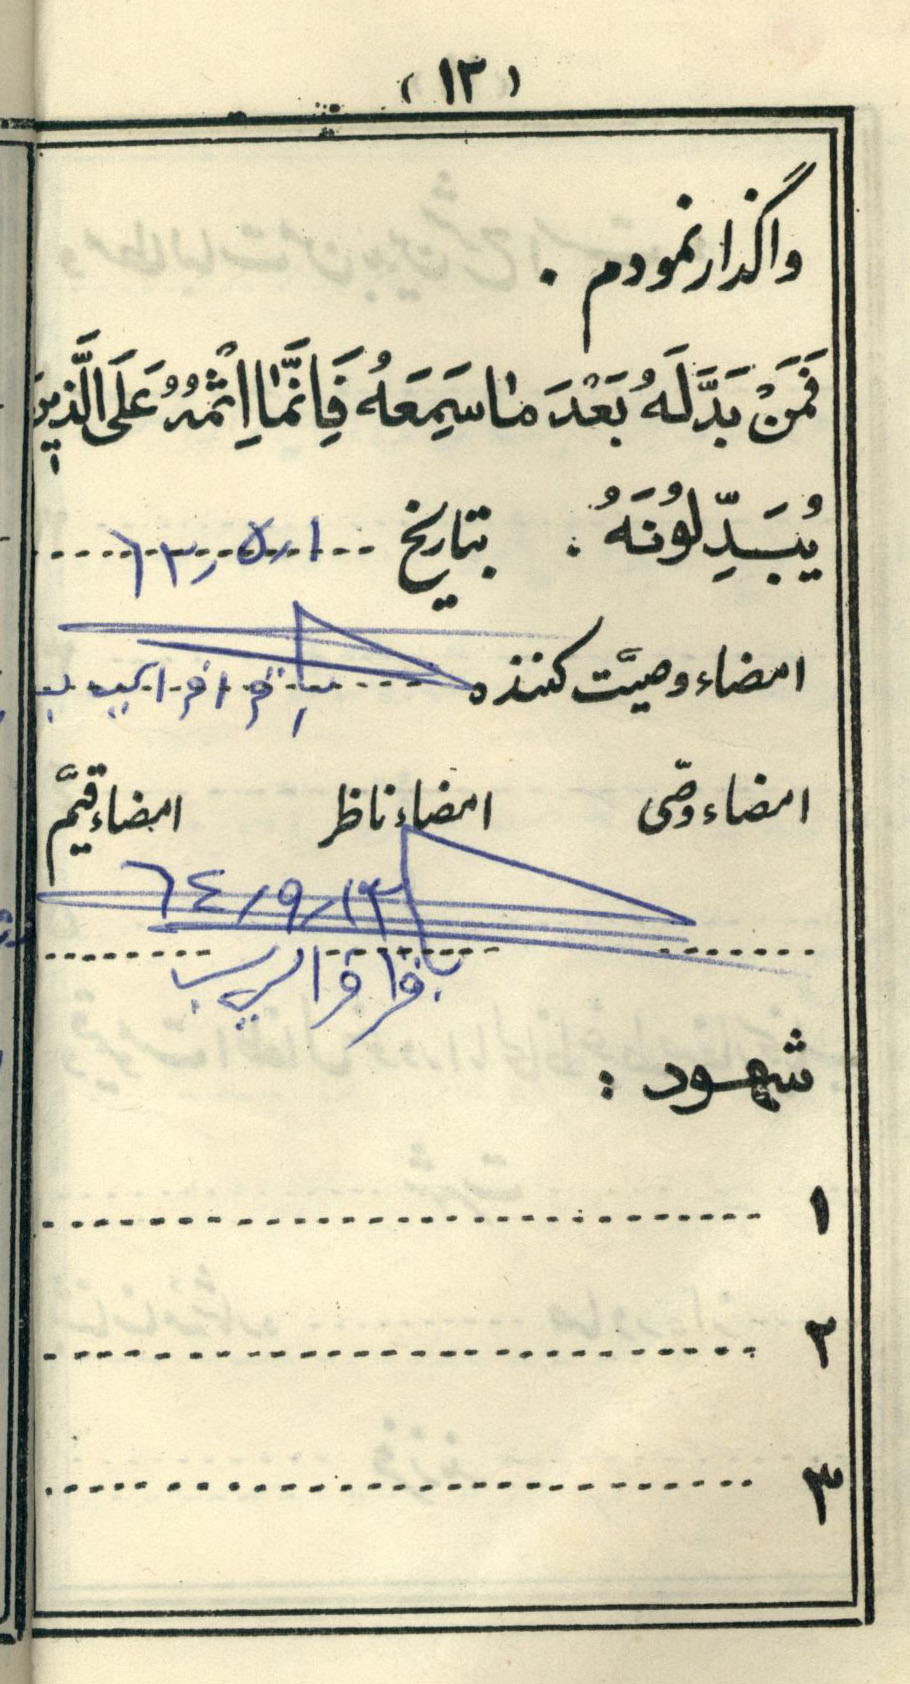 (١٣)
واگذار نمودم .
فَمَنْ بَدَّلَهُ بَعْدَ مٰا سَمِعَهُ فَاِنَّمٰا اِثْمُهُ عَلَی الَّذینَ
یُبَدِّلُونَهُ . بتاریخ ٦٣٫٥٫١
امضاء وصیَّت کننده
امضاء وصّی امضاء ناظر امضاء قیَّم
٦٤٫٩٫١٣
شهود :
١
٢
٣